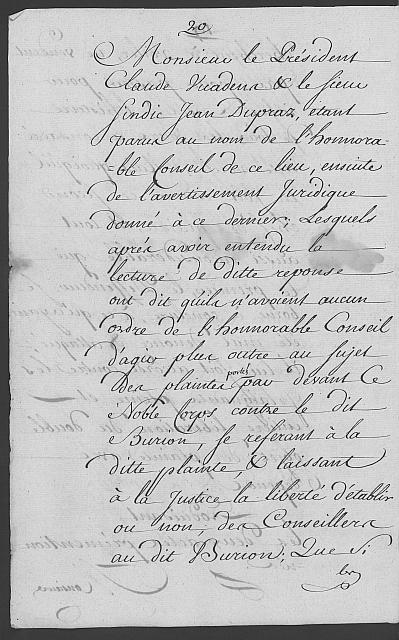 20
Monsieur le Président
Claude Vuadens & le sieur
sindic Jean Dupraz, etant
parus au nom de l'honnora=
=ble Conseil de ce lieu, ensuite
de l'avertissement Juridique
donné à ce dernier; Lesquels
aprés avoir entendu la
lecture de ditte reponse
ont dit quils n'avoient aucun
ordre de l'honnorable Conseil
d'agir plus outre au sujet
des plaintes portés par devant Ce
Noble Corps contre le dit
Burion, se referant à la
ditte plainte, & laissant
à la Justice la liberté d'établir
ou non, des Conseillers
au dit Burion; Que si
les